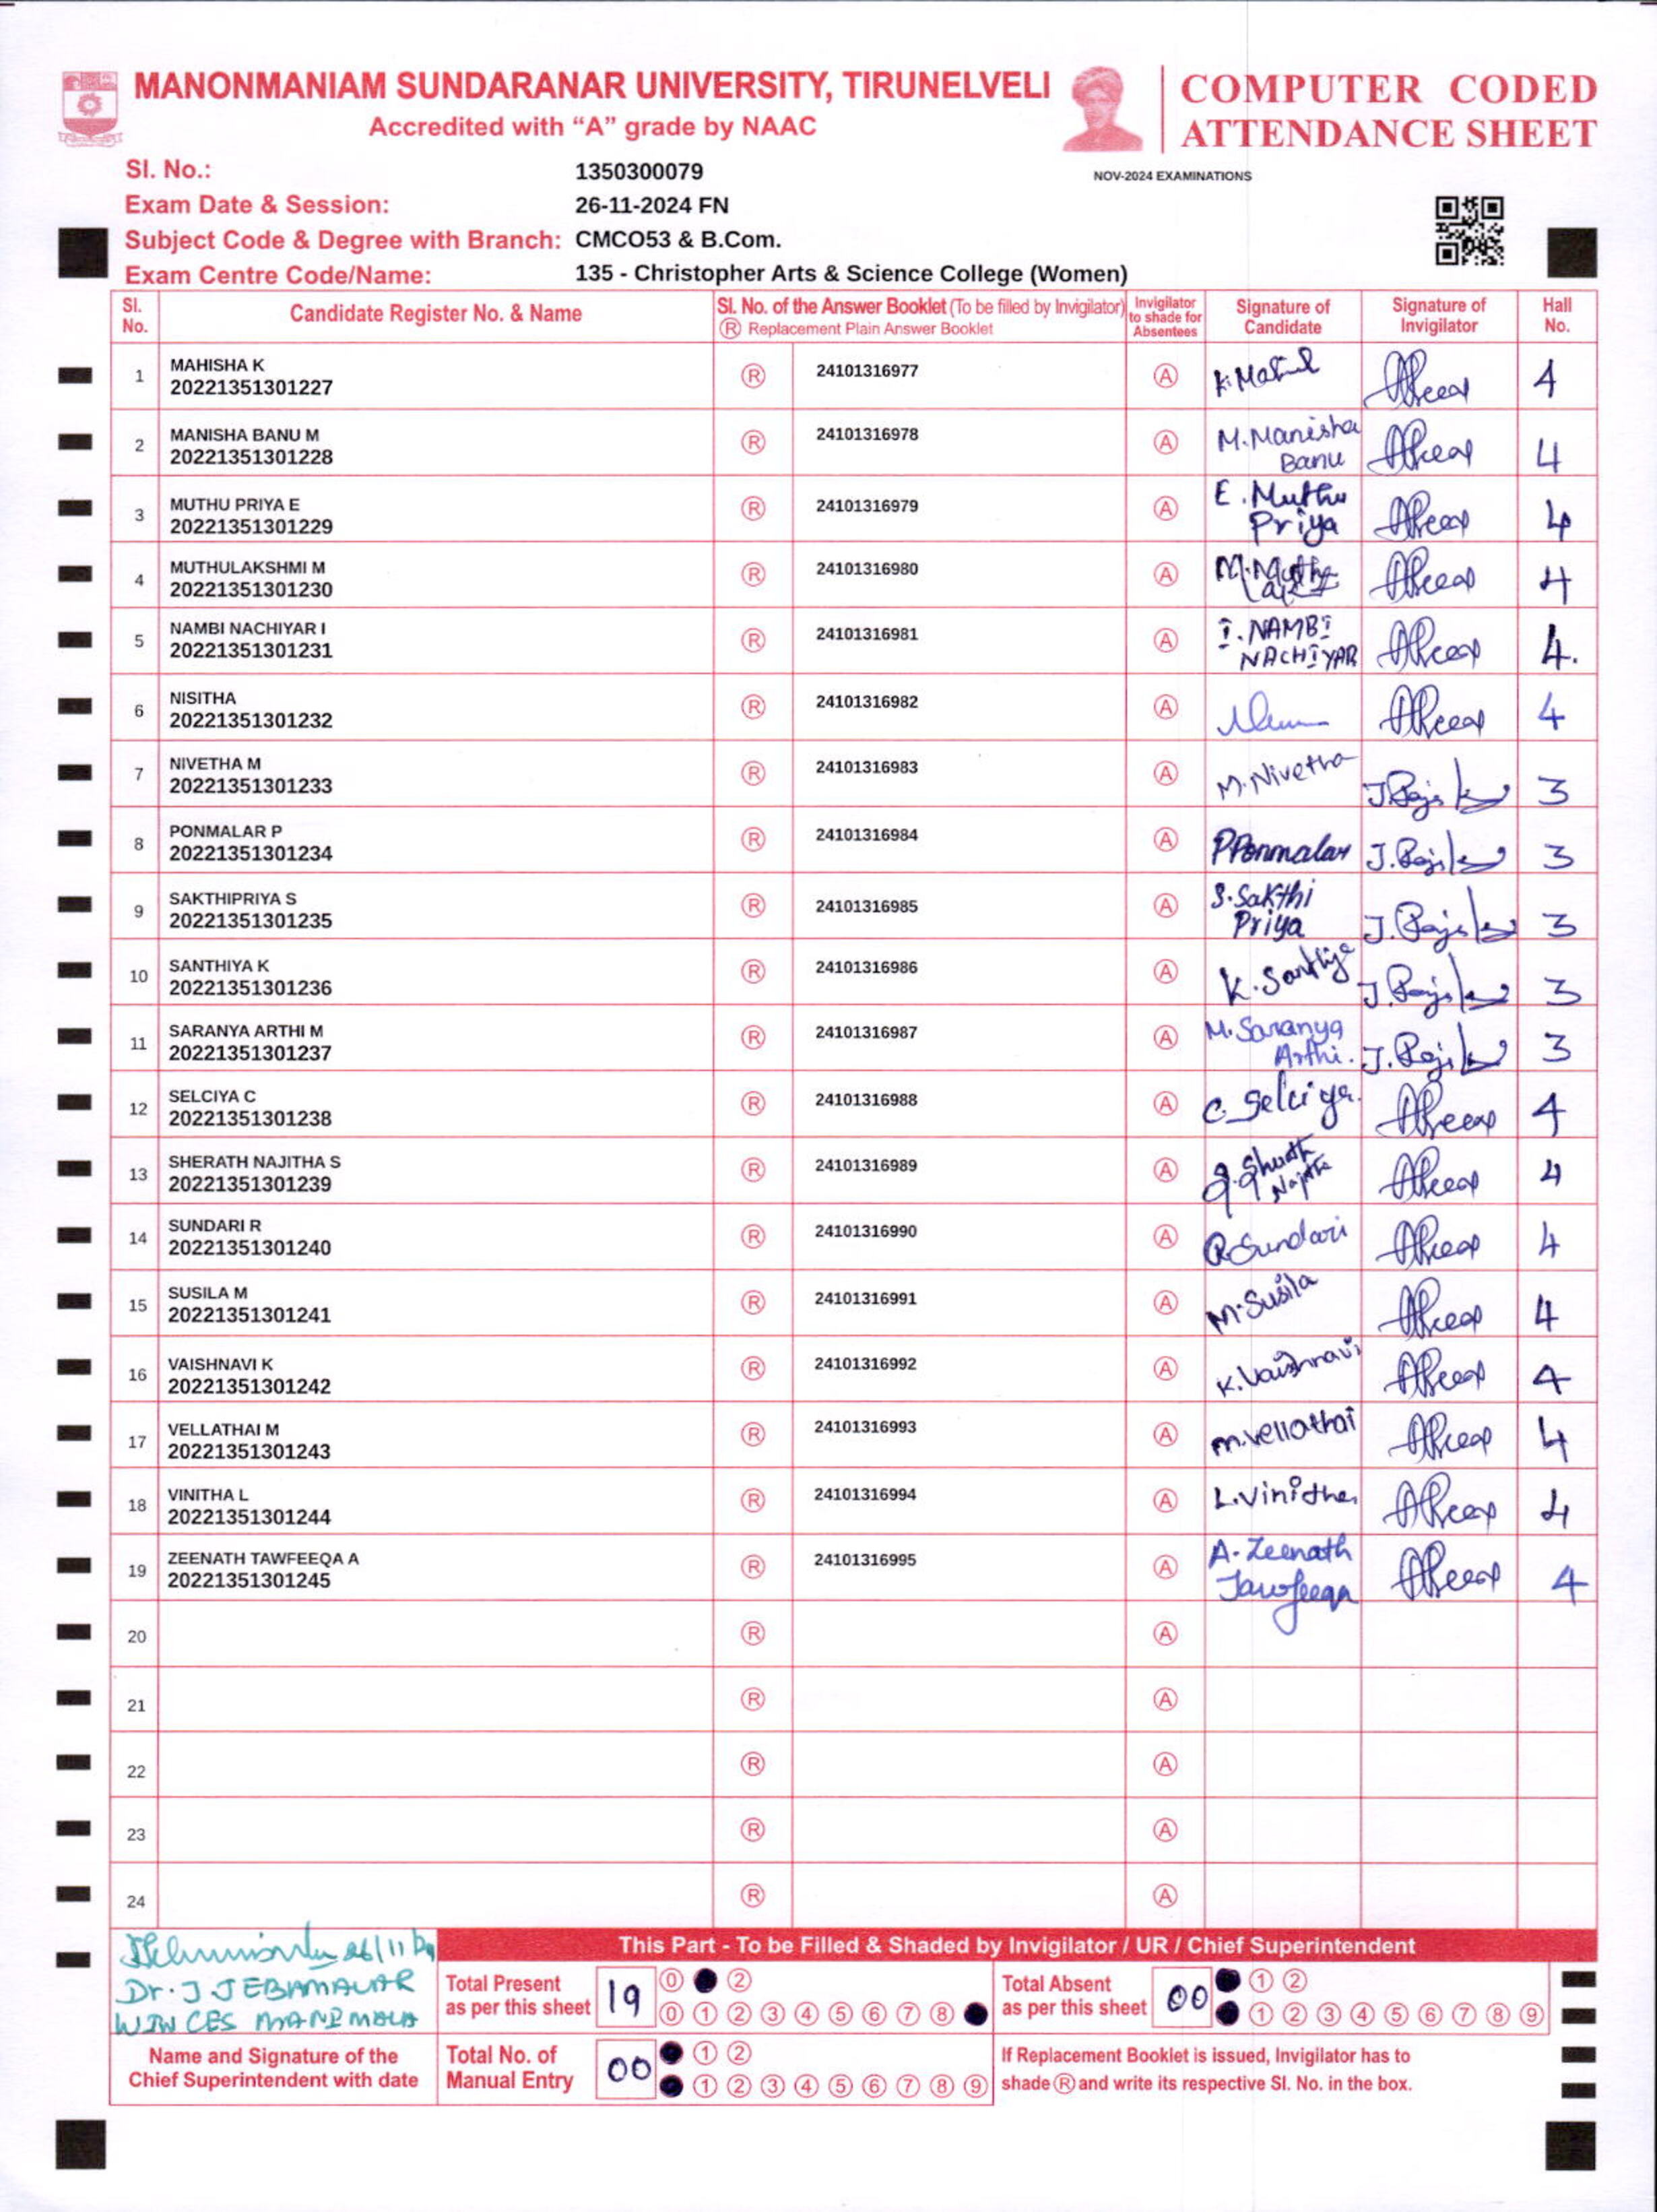 MANONMANIAM SUNDARANAR UNIVERSITY, TIRUNELVELI
Accredited with “A” grade by NAAC
COMPUTER CODED
ATTENDANCE SHEET
NOV-2024 EXAMINATIONS
Sl. No.: 1350300079
Exam Date & Session: 26-11-2024 FN
Subject Code & Degree with Branch: CMCO53 & B.Com.
Exam Centre Code/Name: 135 - Christopher Arts & Science College (Women)
Sl. No. Candidate Register No. & Name Sl. No. of the Answer Booklet (To be filled by Invigilator) Ⓡ Replacement Plain Answer Booklet Invigilator to shade for Absentees Signature of Candidate Signature of Invigilator Hall No.
1 MAHISHA K 20221351301227 Ⓡ 24101316977 Ⓐ 4
2 MANISHA BANU M 20221351301228 Ⓡ 24101316978 Ⓐ M.Manisha Banu 4
3 MUTHU PRIYA E 20221351301229 Ⓡ 24101316979 Ⓐ E.Muthu Priya 4
4 MUTHULAKSHMI M 20221351301230 Ⓡ 24101316980 Ⓐ 4
5 NAMBI NACHIYAR I 20221351301231 Ⓡ 24101316981 Ⓐ I.NAMBI NACHIYAR 4.
6 NISITHA 20221351301232 Ⓡ 24101316982 Ⓐ 4
7 NIVETHA M 20221351301233 Ⓡ 24101316983 Ⓐ M.Nivetha 3
8 PONMALAR P 20221351301234 Ⓡ 24101316984 Ⓐ P.Ponmalar 3
9 SAKTHIPRIYA S 20221351301235 Ⓡ 24101316985 Ⓐ S.Sakthi Priya 3
10 SANTHIYA K 20221351301236 Ⓡ 24101316986 Ⓐ K.Santhiya 3
11 SARANYA ARTHI M 20221351301237 Ⓡ 24101316987 Ⓐ M.Saranya Arthi. 3
12 SELCIYA C 20221351301238 Ⓡ 24101316988 Ⓐ C.Selciya. 4
13 SHERATH NAJITHA S 20221351301239 Ⓡ 24101316989 Ⓐ 4
14 SUNDARI R 20221351301240 Ⓡ 24101316990 Ⓐ R.Sundari 4
15 SUSILA M 20221351301241 Ⓡ 24101316991 Ⓐ M.Susila 4
16 VAISHNAVI K 20221351301242 Ⓡ 24101316992 Ⓐ K.Vaishnavi 4
17 VELLATHAI M 20221351301243 Ⓡ 24101316993 Ⓐ M.Vellathai 4
18 VINITHA L 20221351301244 Ⓡ 24101316994 Ⓐ L.Vinitha 4
19 ZEENATH TAWFEEQA A 20221351301245 Ⓡ 24101316995 Ⓐ A.Zeenath Tawfeeqa 4
20 Ⓡ Ⓐ
21 Ⓡ Ⓐ
22 Ⓡ Ⓐ
23 Ⓡ Ⓐ
24 Ⓡ Ⓐ
26/11/24
Dr. J JEBAMALAR
Name and Signature of the
Chief Superintendent with date
This Part - To be Filled & Shaded by Invigilator / UR / Chief Superintendent
Total Present as per this sheet 19
⓪ ②
⓪ ① ② ③ ④ ⑤ ⑥ ⑦ ⑧
Total Absent as per this sheet 00
① ②
① ② ③ ④ ⑤ ⑥ ⑦ ⑧ ⑨
Total No. of Manual Entry 00
① ②
① ② ③ ④ ⑤ ⑥ ⑦ ⑧ ⑨
If Replacement Booklet is issued, Invigilator has to
shade Ⓡ and write its respective Sl. No. in the box.